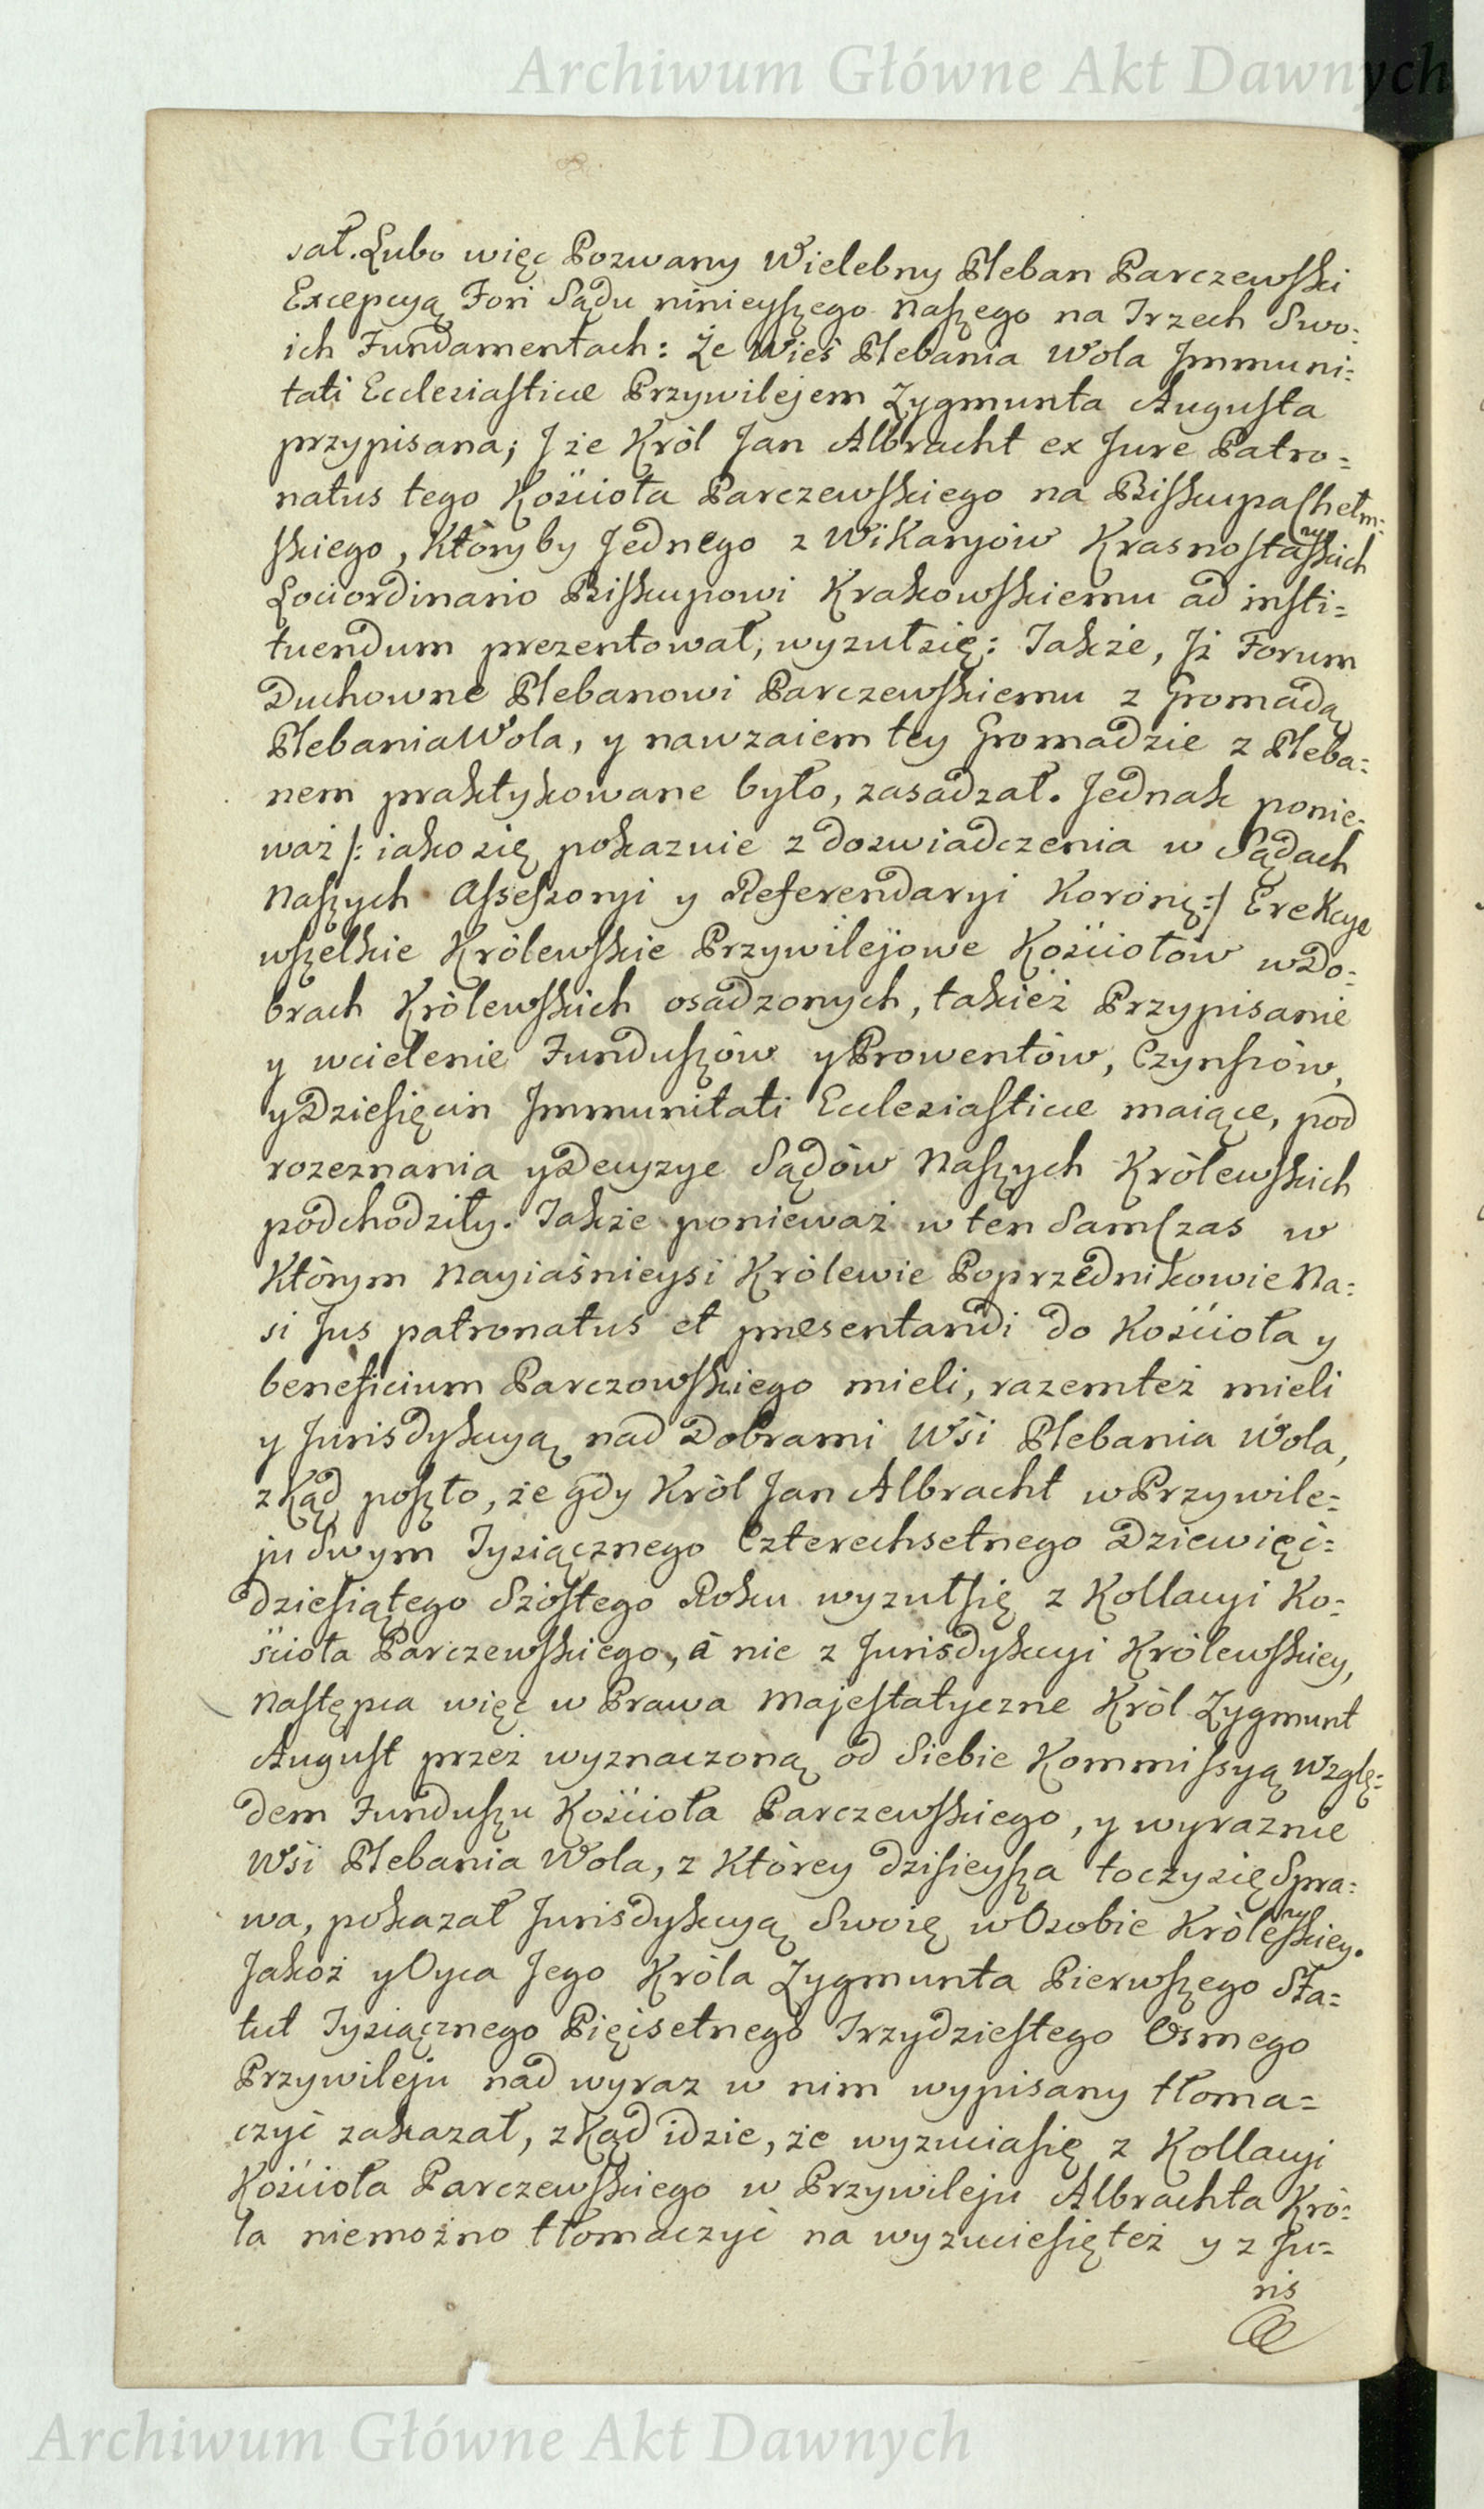 Archiwum Główne Akt Dawnych
sał. Lubo więc Pozwany Wielebny Pleban Parczewski
Excepcyą Fori Sądu ninieyszego Naszego na Trzech Swo-
ich Fundamentach: Że Wieś Plebania Wola Immuni-
tati Ecclesiasticæ Przywilejem Zygmunta Augusta
przypisana; I że Król Jan Albracht ex Jure Patro-
natus tego Kościoła Parczewskiego na Biskupa Chełm-
skiego, Któryby Jednego z Wikaryów Krasnostawskich
Lociordinario Biskupowi Krakowskiemu ad insti-
tuendum prezentował, wyzuł się: Także, Iż Forum
Duchowne Plebanowi Parczewskiemu z Gromadą
Plebania Wola, y nawzaiem tey Gromadzie z Pleba-
nem praktykowane było, zasadzał. Jednak ponie-
waż /: iako się pokazuie z doswiadczenia w Sądach
Naszych Assessoryi y Referendaryi Koronę: / Erekcye
wszelkie Królewskie Przywilejowe Kościołów w Do-
brach Królewskich osadzonych, takież Przypisanie
y wcielenie Funduszów y Prowentów, Czynszów,
y Dziesięcin Immunitati Ecclesiasticæ maiące, pod
rozeznania y Decyzye Sądów Naszych Królewskich
podchodziły. Także ponieważ w ten Sam Czas w
Którym Nayiaśnieysi Królewie Poprzednikowie Na-
si Jus patronatus et præsentandi do Kościoła y
beneficium Parczowskiego mieli, razem też mieli
y Jurisdykcyą nad Dobrami Wsi Plebania Wola,
zkąd poszło, że gdy Król Jan Albracht w Przywile-
ju Swym Tysiącznego Czterechsetnego Dziewięć-
dziesiątego Szóstego Roku wyzuł się z Kollacyi Ko-
ścioła Parczewskiego, à nie z Jurisdykcyi Królewskiey,
Następca więc w Prawa Majestatyczne Król Zygmunt
August przez wyznaczoną od Siebie Kommissyą Wzglę-
dem Funduszu Kościoła Parczewskiego, y wyraznie
Wsi Plebania Wola, z Którey dzisieysza toczy się Spra-
wa, pokazał Jurisdykcyą Swoię w Osobie Królewskiey.
Jakoż y Oyca Jego Króla Zygmunta Pierwszego Sta-
tut Tysiącznego Pięćsetnego Trzydziestego Osmego
Przywileju nad wyraz w nim wypisany tłoma-
czyć zakazał, zkąd idzie, że wyzucia się z Kollacyi
Kościoła Parczewskiego w Przywileju Albrachta Kró-
la niemożno tłomaczyć na wyzucie się też y z Ju-
ris
Archiwum Główne Akt Dawnych